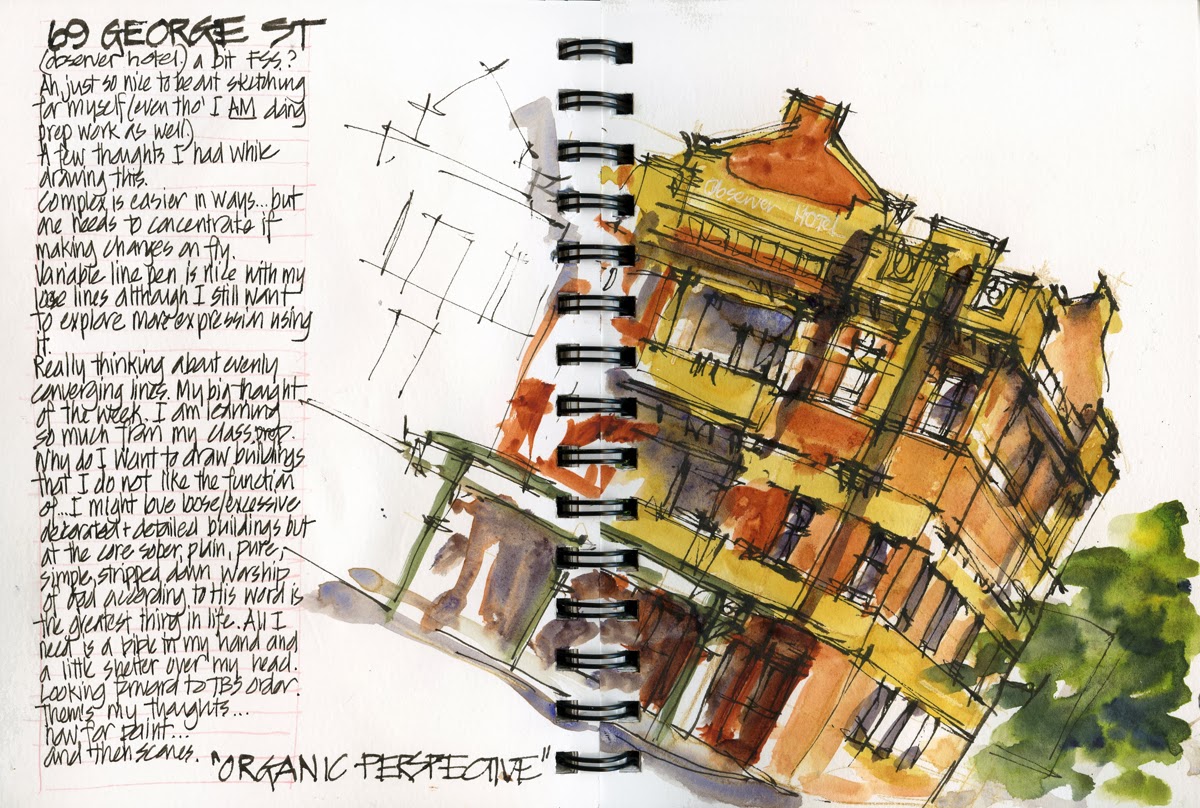 69 GEORGE ST
(observer hotel) a bit FSS.?
Ah, just so nice to be out sketching
for myself (even tho' I AM doing
prep work as well)
A few thoughts I had while
drawing this.
Complex is easier in ways... but
one needs to concentrate if
making changes on fly.
Variable line pen is nice with my
loose lines although I still want
to explore more expression using
it.
Really thinking about evenly
converging lines. My big thought
of the week. I am learning
so much from my class prep
Why do I want to draw buildings
that I do not like the function
of... I might love loose/excessive
decorated + detailed buildings but
at the core sober, plain, pure,
simple, stripped down worship
of God according to His word is
the greatest thing in life. All I
need is a bible in my hand and
a little shelter over my head.
Looking forward to TBS order
Them's my thoughts...
now for paint...
and then scones.
"ORGANIC PERSPECTIVE"
Observer HOTEL